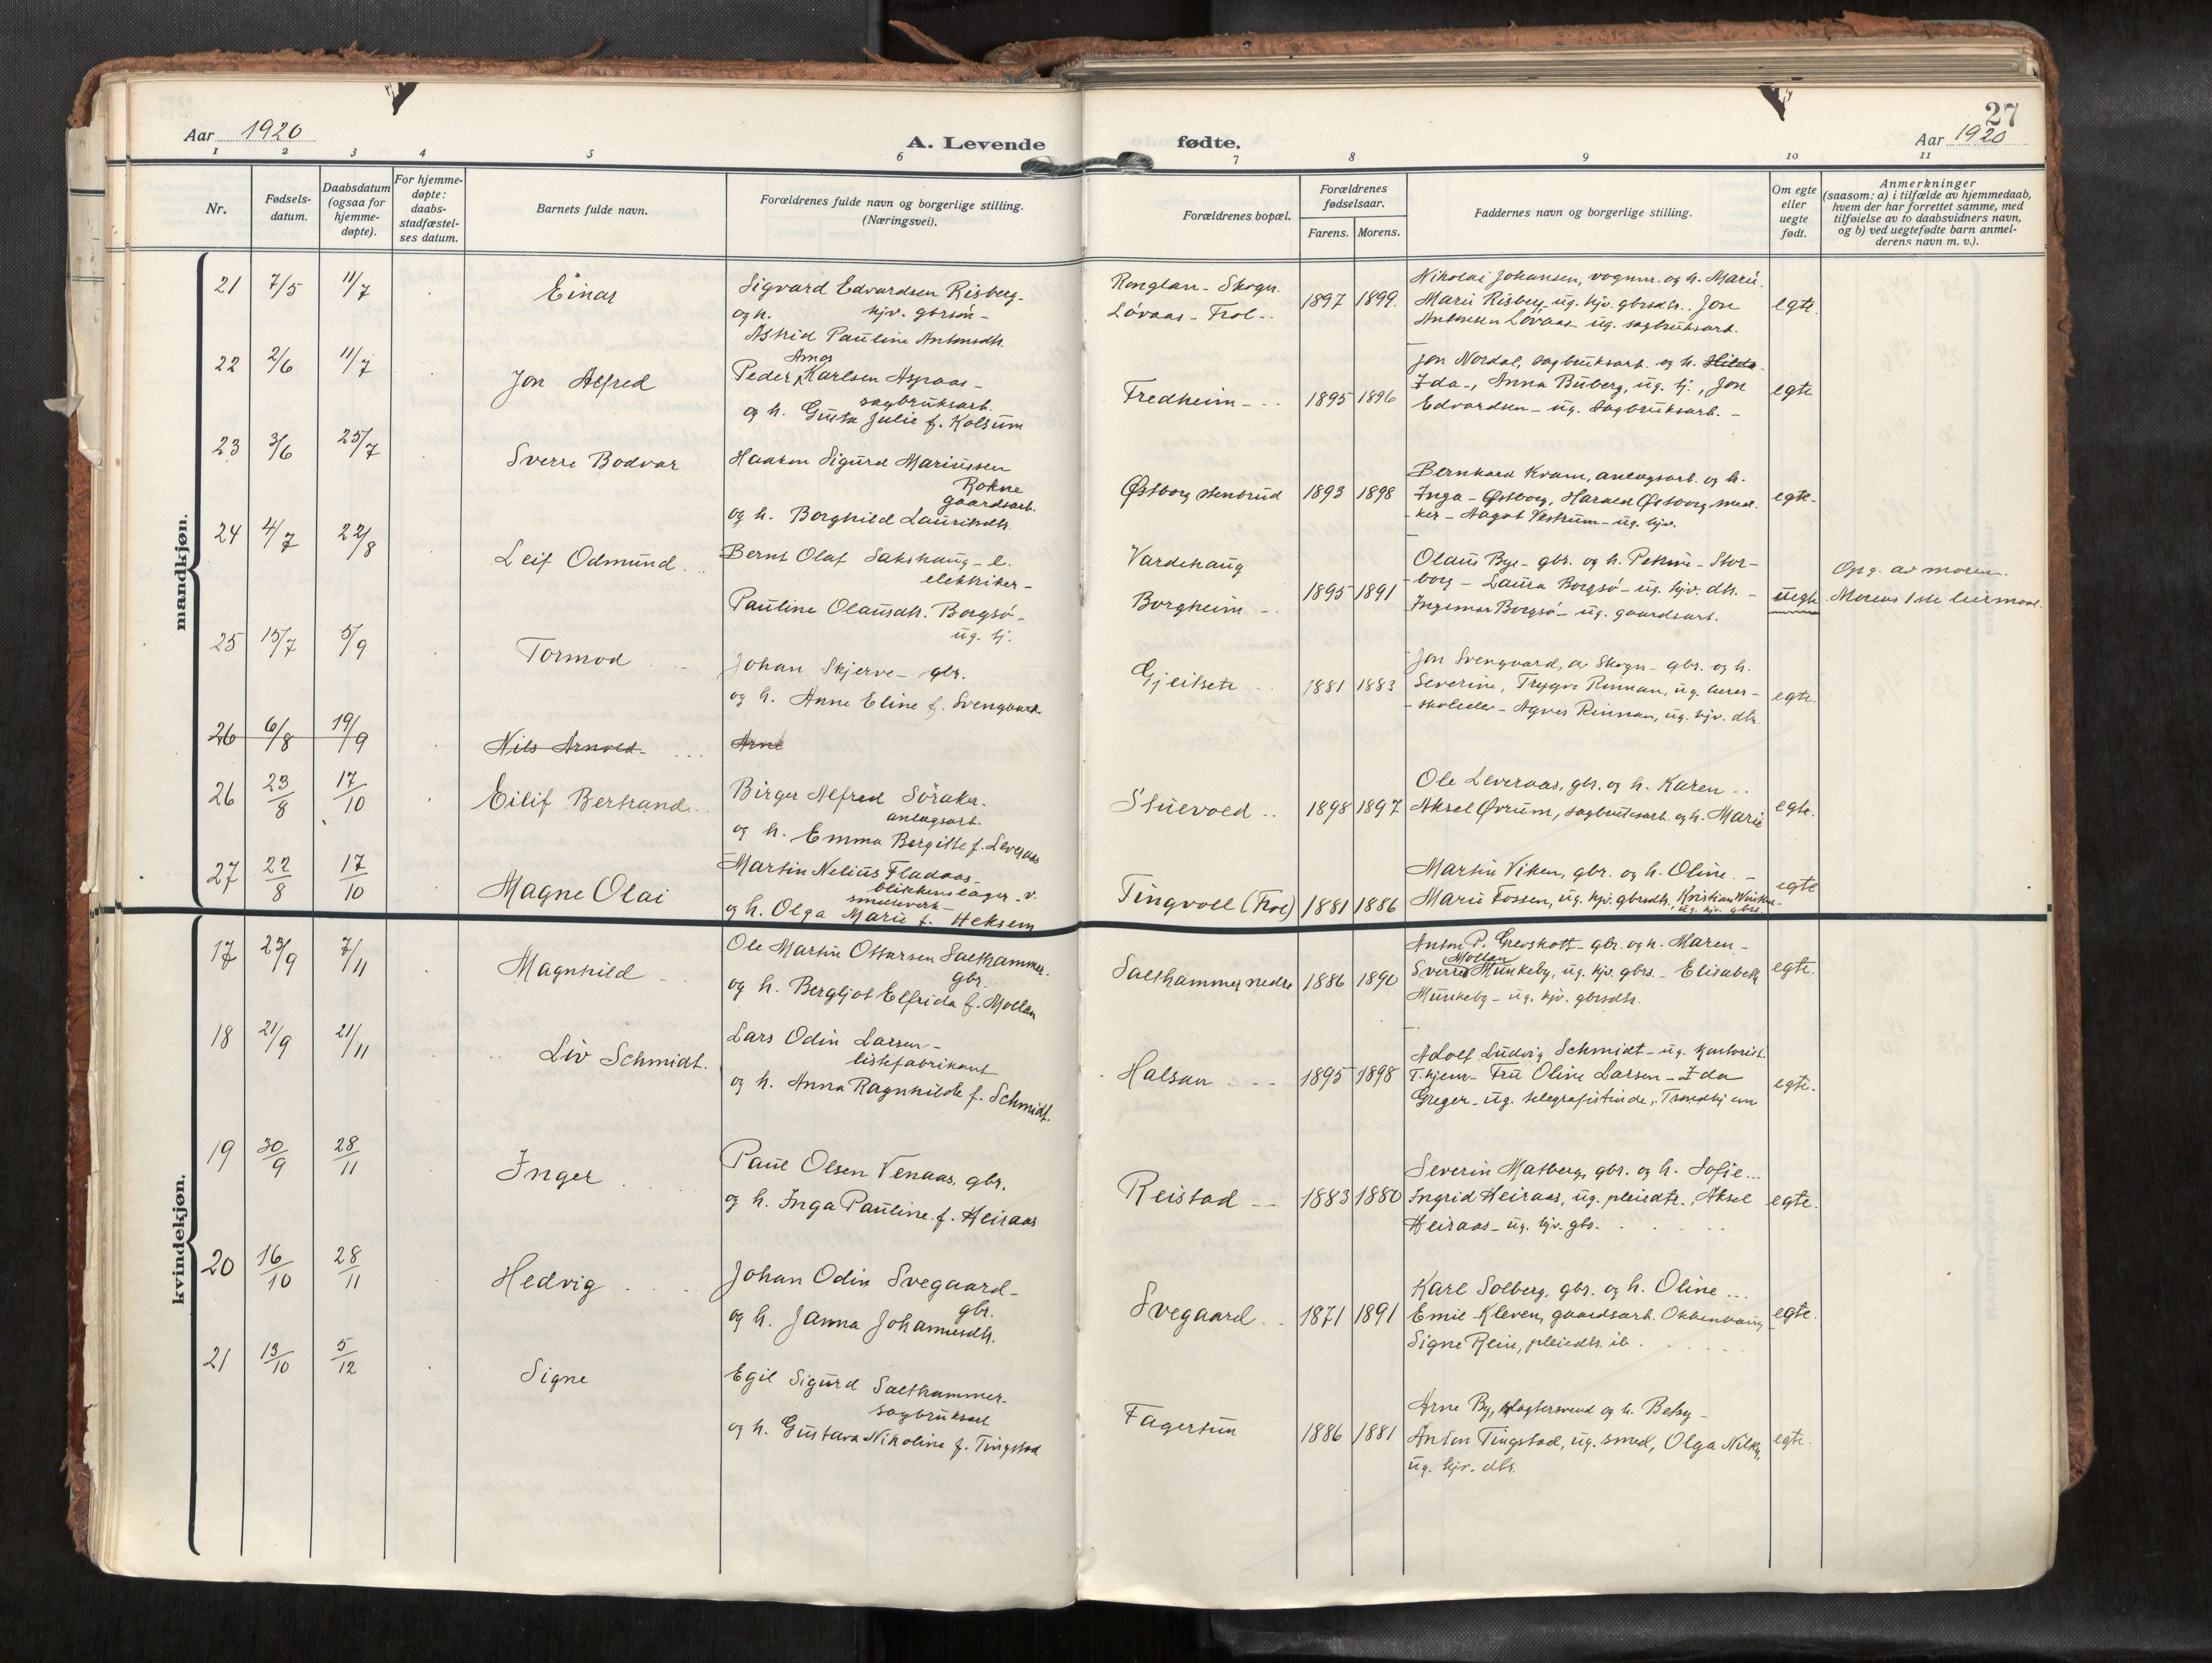 27
Aar 1920
A. Levende
fødte.
Aar 1920
1 2 3 4 5 6 7 8 9 10 11
Nr.
Fødsels-
datum.
Daabsdatum
(ogsaa for
hjemme-
døpte).
For hjemme-
døpte:
daabs-
stadfæstel-
ses datum.
Barnets fulde navn.
Forældrenes fulde navn og borgerlige stilling.
(Næringsvei).
Forældrenes bopæl.
Forældrenes
fødselsaar.
Farens. Morens.
Faddernes navn og borgerlige stilling.
Om egte
eller
uegte
født.
Anmerkninger
(saasom: a) i tilfælde av hjemmedaab,
hvem der har forrettet samme, med
tilføielse av to daabsvidners navn,
og b) ved uegtefødte barn anmel-
derens navn m. v.).
mandkjøn.
21 7/5 11/7 Einar
Sigvard Edvardsen Risberg-
og h. hjv. gbrsøn-
Astrid Pauline Antonsdtr.
Ronglan - Skogn
Lövaas - Frol
1897 1899.
Nikolai Johansen, vognm. og h. Marie.
Marie Risberg ug. hjv. gbrsdtr. Jon
Antonsen Lövaas ug. sagbruksarb.
egte.
22 2/6 11/7 Jon Alfred
Arnos
Peder Karlsen Aspaas-
sagbruksarb.
og h. Gusta Julie f. Kolsum
Fredheim
1895 1896
Jon Nordal, sagbruksarb. og h. Hilda
Ida-, Anna Buberg, ug. tj., Jon
Edvardsen - ug. sagbruksarb. -
egte
23 3/6 25/7 Sverre Bodvar
Haakon Sigurd Mariussen
Rokne
gaardsarb.
og h. Borghild Lauritsdtr.
Østborg stenbrud
1893 1898
Bernhard Kvam, anlægsarb. og h.
Inga - Østborg, Harald Østborg, sned-
ker - Aagot Vestrum - ug. hjv.
egte.
24 4/7 22/8 Leif Odmund
Bernt Olaf Sakshaug - e.
elektriker-
Pauline Olausdtr. Borgsö-
ug. tj.
Vardehaug
Borgheim
1895 1891
Olaus Bye - gbr. og h. Petrine - Stor-
borg - Laura Borgsö - ug. hjv. dtr. -
Ingemar Borgsö - ug. gaardsarb.
uegte
Opg. av moren.
Morens 1ste leiermaal.
25 15/7 5/9 Tormod
Johan Skjerve - gbr.
og h. Anne Eline f. Svengaard
Gjeitsete
1881 1883
Jon Svengaard, av Skogn - gbr. og h.
Severine, Trygve Rinnan, ug. lærer-
skoleelev - Agnes Rinnan, ug. hjv. dtr.
egte.
26 6/8 19/9 Nils Arnold Arne
26 23/8 17/10 Eilif Bertrand
Birger Alfred Söraker.
anlægsarb.
og h. Emma Bergitte f. Leveraas
Stuevold
1898 1897
Ole Leveraas, gbr. og h. Karen
Aksel Øvrum, sagbruksarb. og h. Marie
egte.
27 22/8 17/10 Magne Olai
Martin Nelius Fladaas-
blikkenslager - v.
smelteverk-
og h. Olga Marie f. Heksem
Tingvoll (Frol)
1881 1886
Martin Viken, gbr. og h. Oline. -
Marie Fossen, ug. hjv. gbrsdtr., Kristian
ug. hjv. gbrs.
egte
kvindekjøn.
17 23/9 7/11 Magnhild
Ole Martin Ottarsen Salthammer.
gbr.
og h. Bergljot Elfrida f. Mollan
Salthammer nedre
1886 1890
Anton P. Grevskott - gbr. og h. Maren -
Mollan
Sverre Munkeby, ug. hjv. gbrs. - Elisabeth
Munkeby - ug. hjv. gbrsdtr.
egte.
18 21/9 21/11 Liv Schmidt.
Lars Odin Larsen-
listefabrikant
og h. Anna Ragnhilde f. Schmidt.
Halsan
1895 1898
Adolf Ludvig Schmidt - ug. kontorist.
T.hjem - Fru Oline Larsen - Ida
Greger - ug. telegrafistinde, Trondhjem
egte.
19 30/9 28/11 Inger
Paul Olsen Venaas, gbr.
og h. Inga Pauline f. Heiraas
Reistad
1883 1880
Severin Matberg, gbr. og h. Sofie
Ingrid Heiraas, ug. pleiedtr., Aksel
Heiraas - ug. hjv. gbs.
egte.
20 16/10 28/11 Hedvig
Johan Odin Svegaard-
gbr.
og h. Janna Johannesdtr.
Svegaard
1871 1891
Karl Solberg, gbr. og h. Oline
Emil Kleven, gaardsarb. Okkenhaug
Signe Rein, pleiedtr. ib.
egte.
21 13/10 5/12 Signe
Egil Sigurd Salthammer-
sagbruksarb
og h. Gustava Nikoline f. Tingstad
Fagertun
1886 1881
Arne By, slagtersvend og h. Betsy -
Anton Tingstad, ug. smed, Olga
ug. hjv. dtr.
egte.